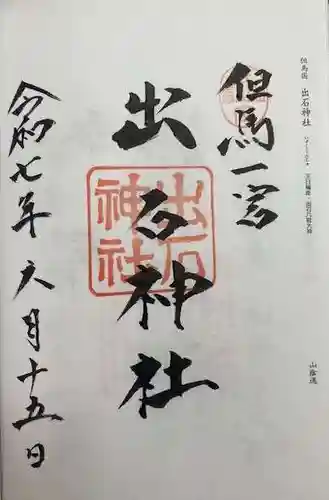 但馬国 出石神社
山陰道
但馬一宮
出石神社
出石神社
令和七年六月十五日